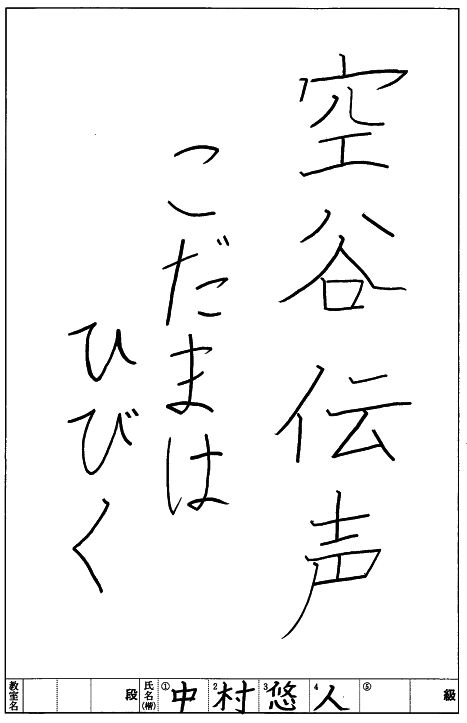 空谷伝声
こだまは
ひびく
教室名 段 氏名(楷) ①中 2村 3悠 4人 ⑤ 級